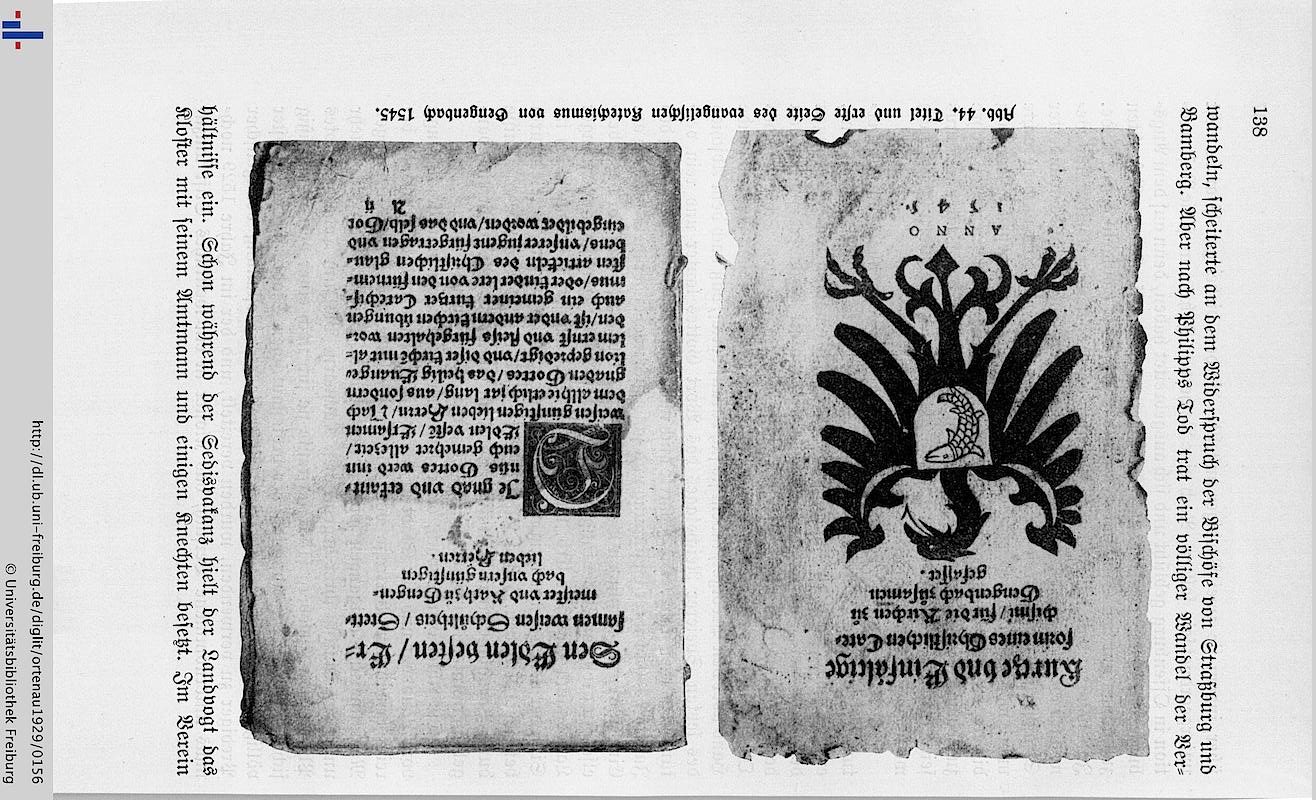 138
wandeln, scheiterte an dem Widerspruch der Bischöfe von Straßburg und
Bamberg. Aber nach Philipps Tod trat ein völliger Wandel der Ver-
Kurtze vnd Einfältige
form eines Christlichen Cate-
chismi / für die Kirchen zů
Gengenbach zůsamen
gefasset.
ANNO
1545.
Den Edlen vesten / Er-
samen weisen Schůltheis / Stett-
meister vnd Rath zů Gengen-
bach vnsern günstigen
lieben Herren.
Je gnad vnd erkant-
nüs Gottes werd inn
euch gemehret allezeit /
Edlen veste / Ersamen
weisen günstigen lieben Herrn /
dem allhie etlich jar lang / aus sondern
gnaden Gottes / das heilig Euange-
lion geprediget / vnd diser kirchē mit al-
lem ernst vnd fleiß fürgehalten wor-
den / ist vnder andern kirchen übungen
auch ein gemeiner kurtzer Catechis-
mus / oder kinder lere von den fürnem-
sten artickeln des Christlichen glau-
bens / vnserer jugent fürgetragen vnd
eingebildet worden / vnd das selb / Got
A ij
Abb. 44. Titel und erste Seite des evangelischen Katechismus von Gengenbach 1545.
hältnisse ein. Schon während der Sedisvakanz hielt der Landvogt das
Kloster mit seinem Amtmann und einigen Knechten besetzt. Im Verein
http://dl.ub.uni-freiburg.de/diglit/ortenau1929/0156
© Universitätsbibliothek Freiburg